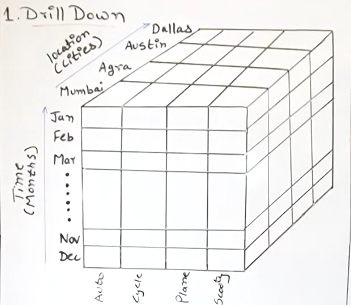 1. Drill Down
location
(cities)
Dallas
Austin
Agra
Mumbai
Time
(Months)
Jan
Feb
Mar
Nov
Dec
Auto
Cycle
Plane
Scooty